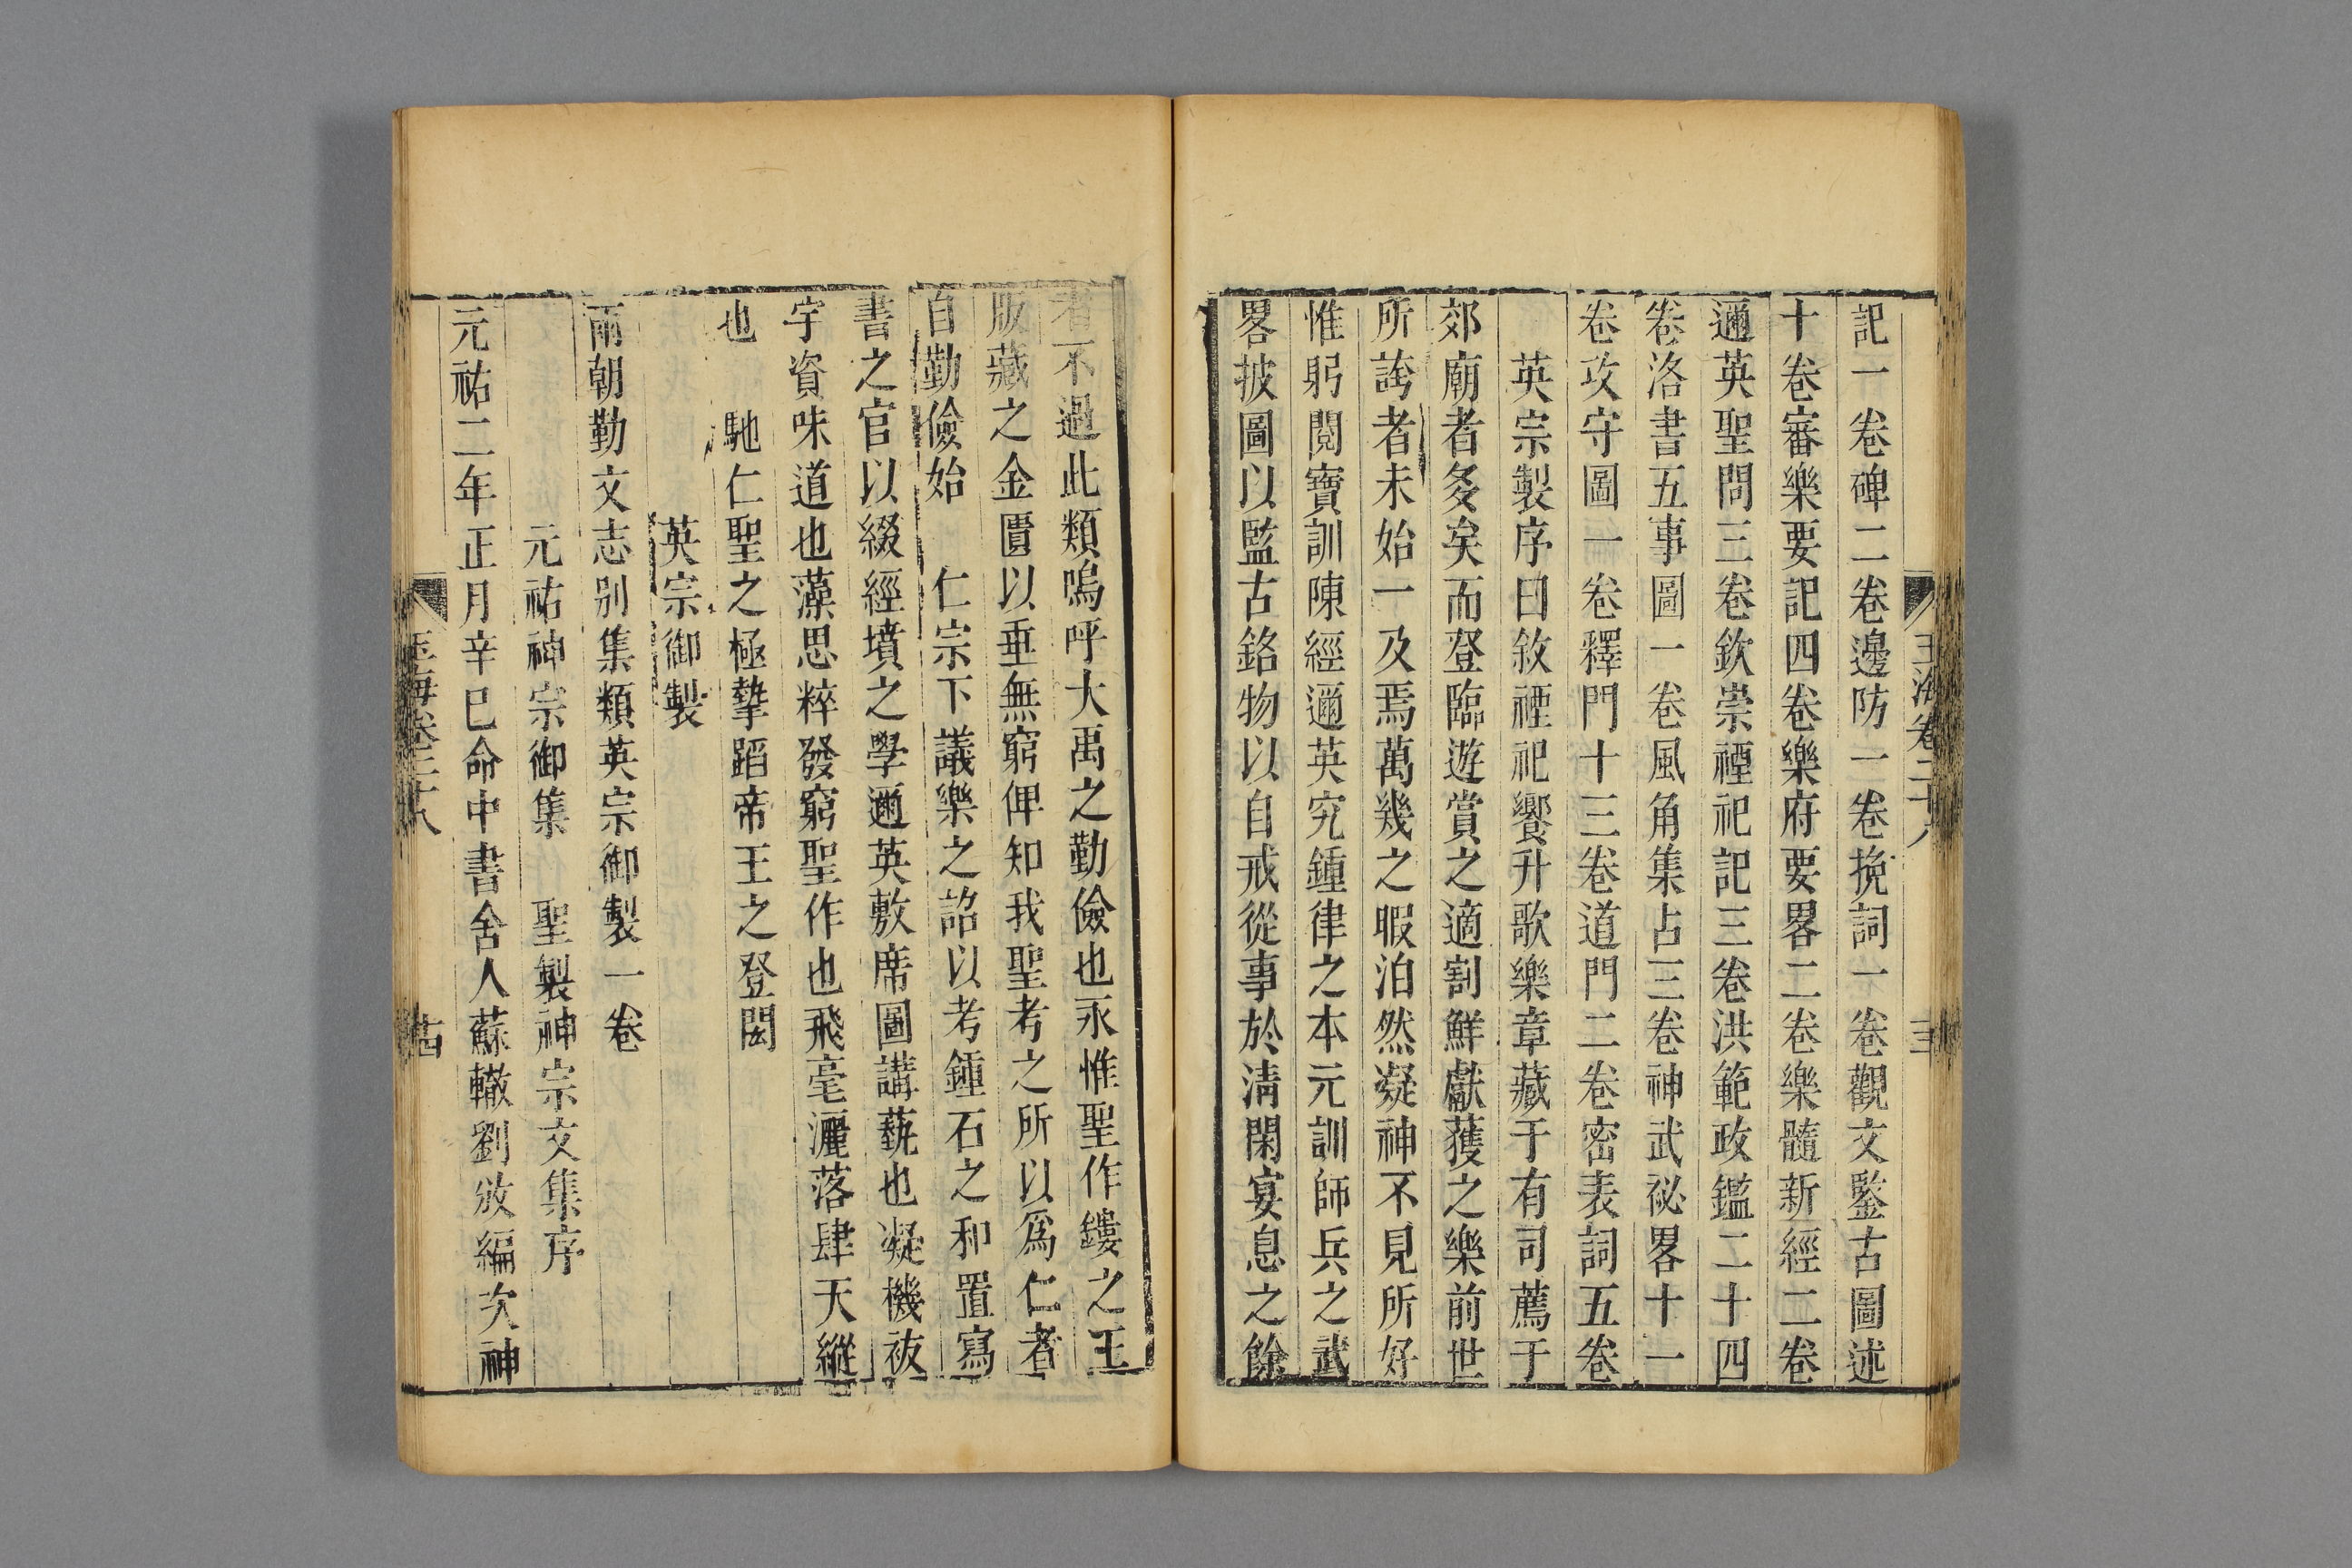 玉海卷二十八
記一卷碑二卷邊防一卷挽詞一卷觀文鑒古圖述
十卷審樂要記四卷樂府要畧二卷樂髓新經二卷
邇英聖問三卷欽崇禋祀記三卷洪範政鑑二十四
卷洛書五事圖一卷風角集占三卷神武祕畧十一
卷攻守圖一卷釋門十三卷道門二卷密表詞五卷
英宗製序曰敘禋祀饗升歌樂章藏于有司薦于
郊廟者多矣而登臨遊賞之適割鮮獻獲之樂前世
所誇者未始一及焉萬幾之暇泊然凝神不見所好
惟躬閱寶訓陳經邇英究鍾律之本元訓師兵之武
畧披圖以監古銘物以自戒從事於淸閑宴息之餘
者不過此類嗚呼大禹之勤儉也永惟聖作鏤之玉
版藏之金匱以垂無窮俾知我聖考之所以爲仁者
自勤儉始 仁宗下議樂之詔以考鍾石之和置寫
書之官以綴經墳之學邇英敷席圖講藝也凝機祓
宇資味道也藻思粹發窮聖作也飛毫灑落肆天縱
也 馳仁聖之極摯蹈帝王之登閎
英宗御製
兩朝勤文志别集類英宗御製一卷
元祐神宗御集 聖製神宗文集序
元祐二年正月辛巳命中書舍人蘇轍劉攽編次神
玉海卷二十八
十四